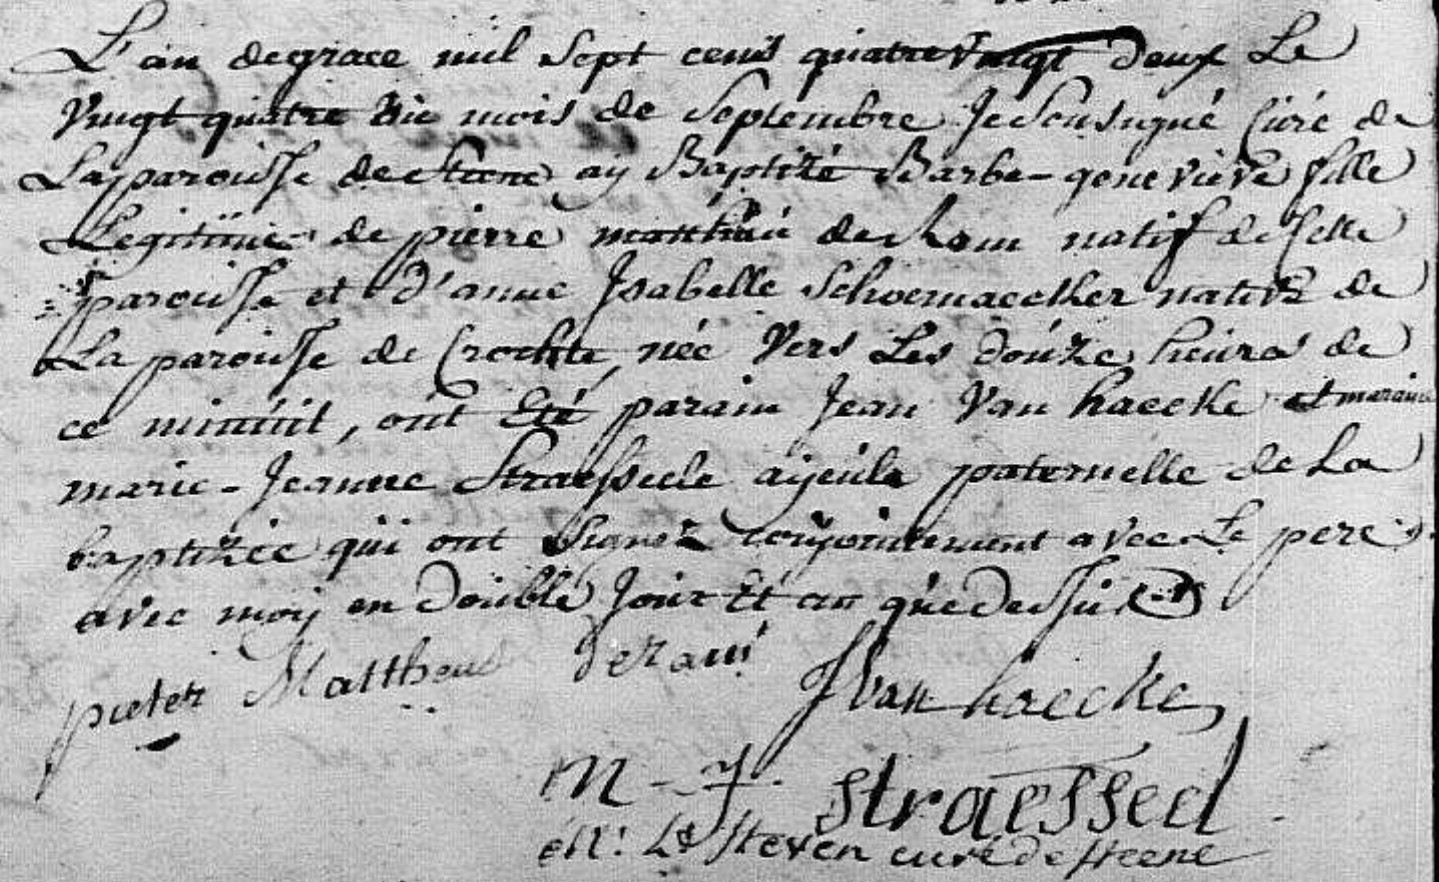 L'an de grace mil Sept cens quatre vingt deux Le
Vingt quatre du mois de Septembre Je Sousigné Curé de
La paroisse de Steene ay Baptizé Barbe-genevieve fille
Legitime de pierre matthieu de natif de Cette
paroisse et d'anne Isabelle Schoemaecker native de
La paroisse de Crochte, née Vers Les douze heures de
ce minuit, ont Eté parain Jean Van haecke et maraine
marie-Jeanne Straesseele ayeule paternelle de La
baptizée qui ont Signez conjointement avec Le pere
avec moy en double Jour Et an que dessus
pieter Mattheus deram
J Van haecke
M-J. straesseel
Steven curé de steene